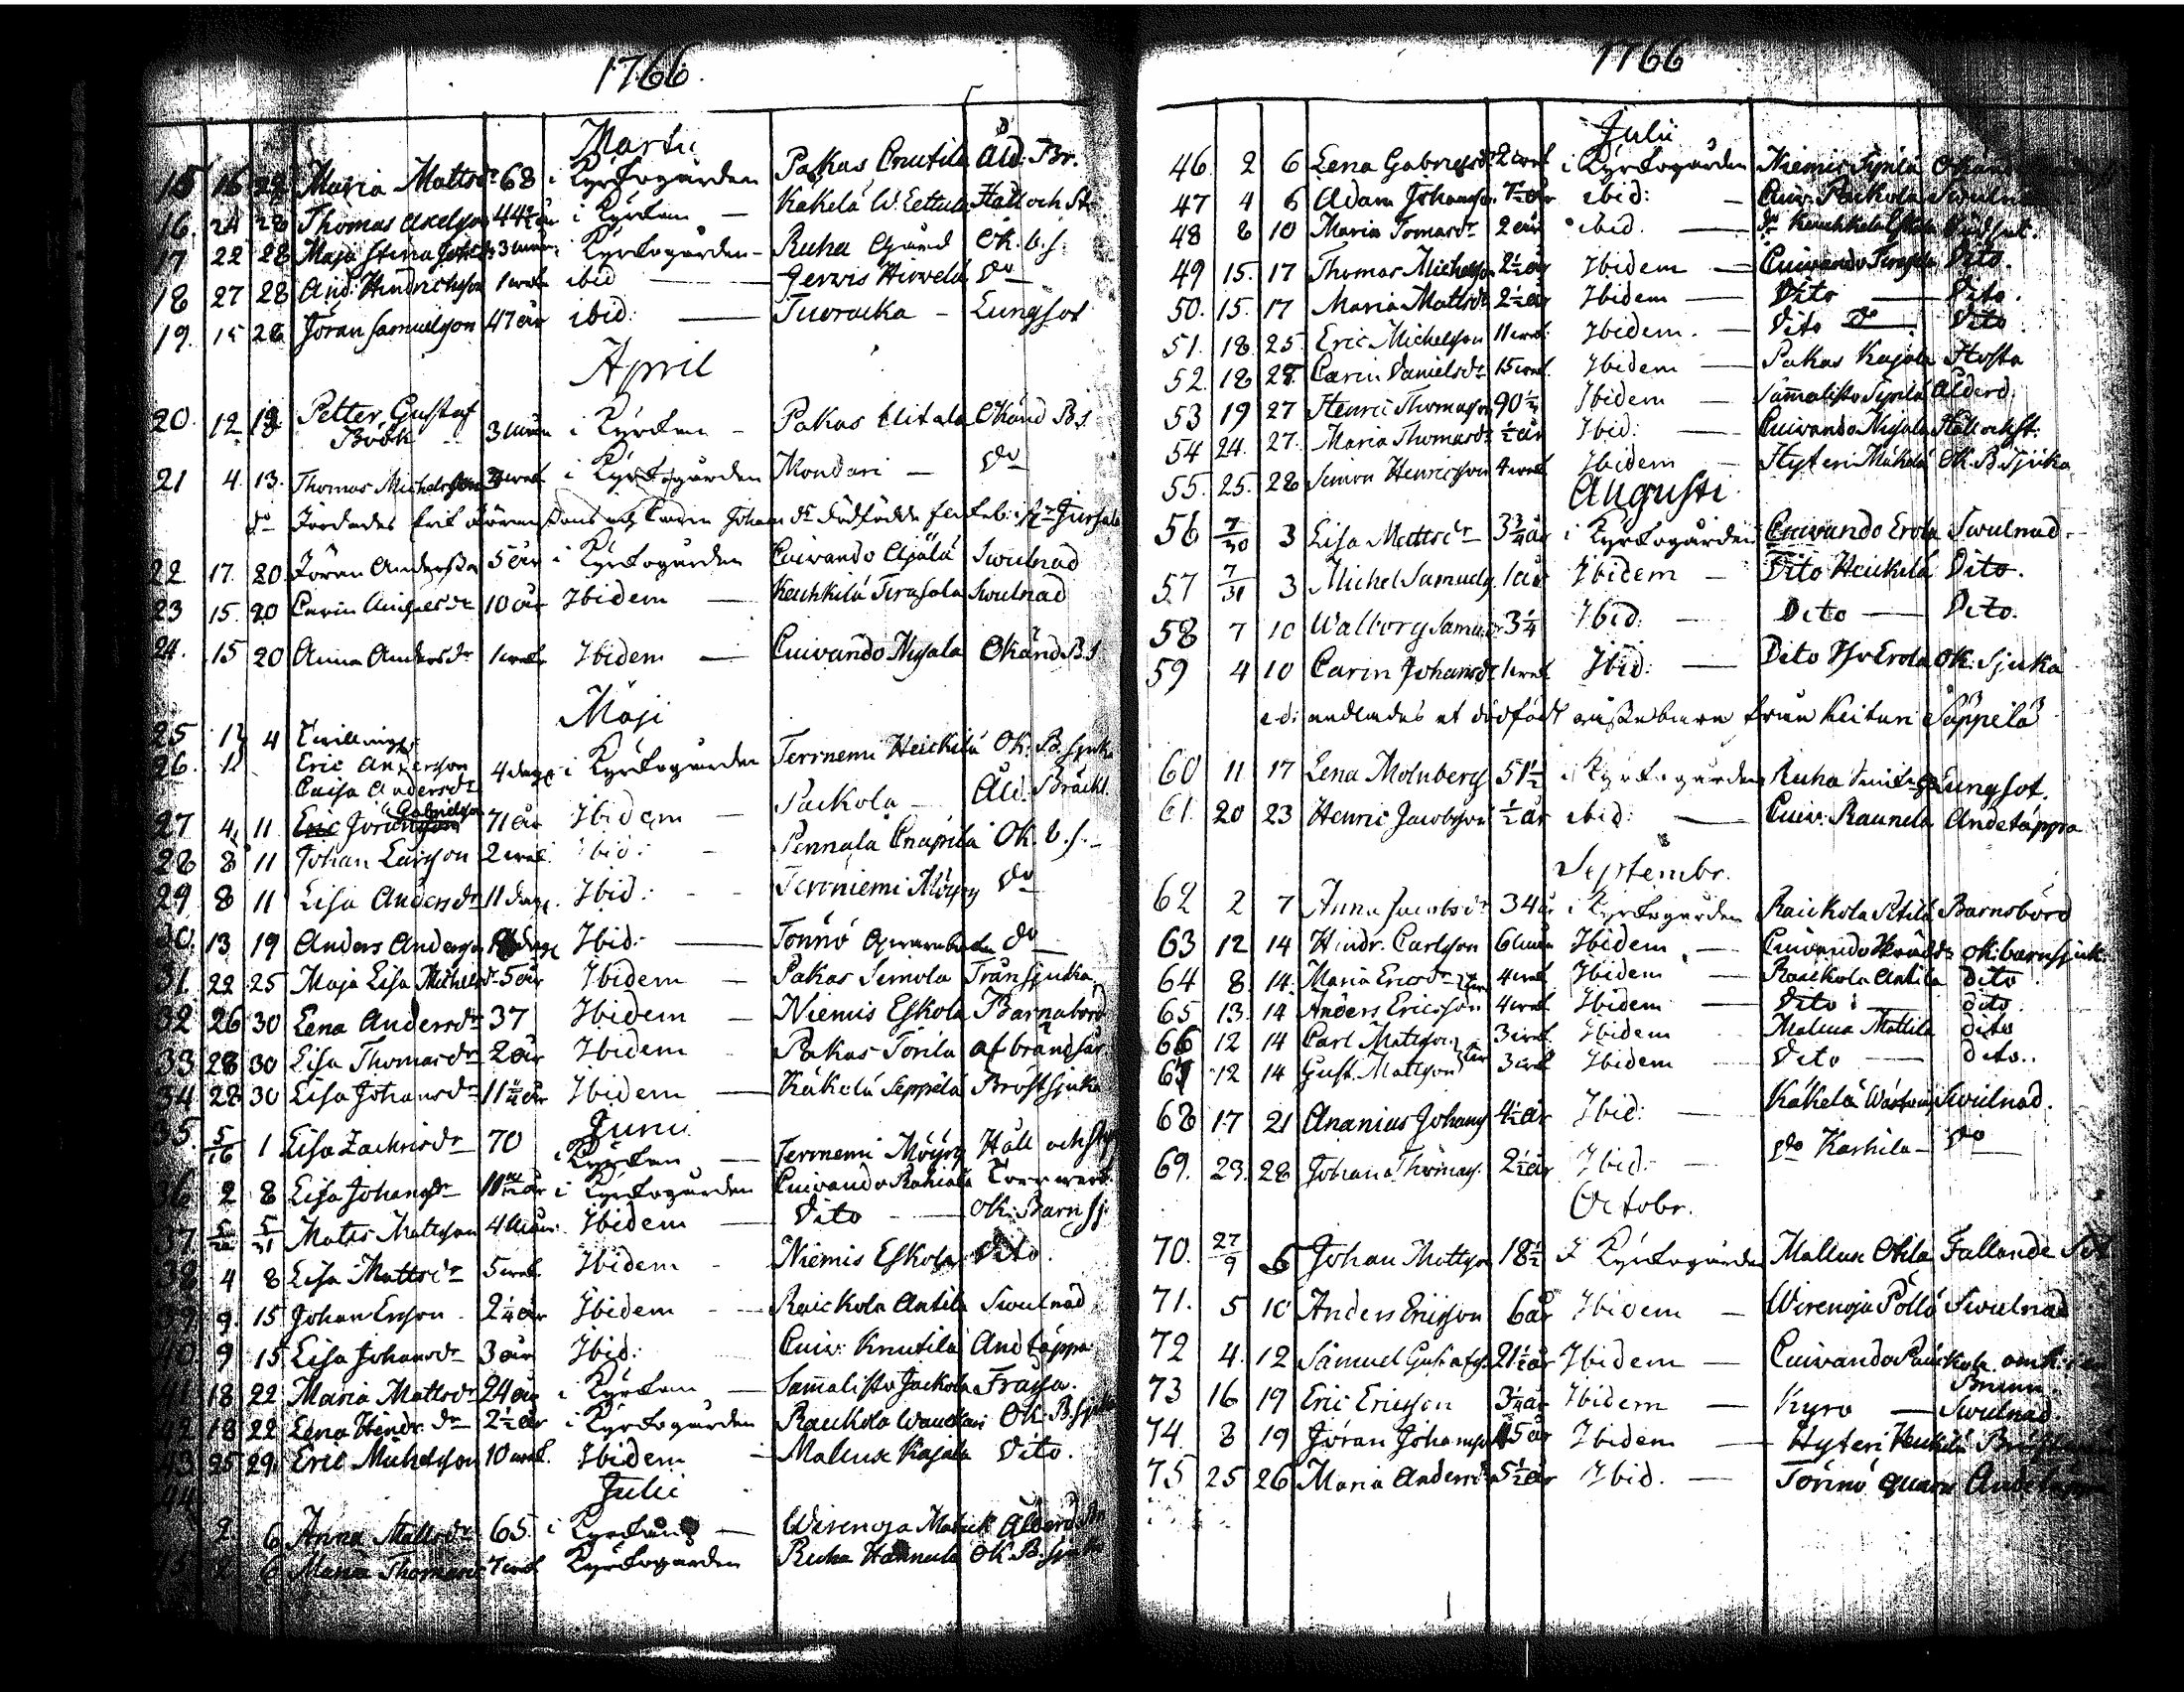 1766.
Martii
15 16 28 Maria Mattsdr 68 i Kyrkogården Pakas Cnutila Åld: Br.
16. 24 28 Thomas Axelson 44½ år i Kyrkan — Käkelä W. Eettula Håll och St.
17 22 28 Maja Stina 3 mån: Kyrkogården - Ruha Gård Ok. b. s.
18 27 28 And. Hindrichson 1 wek ibid — Jerwis Hirvelä do
19. 15 28 Jöran Samuelson 47 år ibid: — Tuoracka - Lungsot
April
20. 12 13 Petter Gustaf
Böök 3 mån i Kyrkan - Pakas Elitala Okänd B s.
21 4. 13. Thomas Michelsson wek i Kyrkogården Mondari — do
do Jordades
22. 17. 20. Jöran Andersson 5 år i Kyrkogården Cuivando Ajälä Swulnad
23 15. 20 Carin dr 10 år Ibidem — Keuhkilä Tirasola Swulnad
24. 15 20 Anna Andersdr 1 wek Ibidem — Cuivando Nigala Okänd B. s
Maji
25 4 Twillingar
26. Eric Anderson 4 dagar i Kyrkogården Terrnemi Heickilä Ok. B. sjuka
Caisa Andersdr
27 4 11 Eric Jöranson Gabrielson 71 år Ibidem — Packola - Åld. Bräckl.
28 8 11 Johan Larson 2 wek. Ibid: - Pennala Cnapila Ok. b. s. -
29. 8 11 Lisa Andersdr 11 dag. Ibid: - - Terrniemi Möyry do
30. 13 19 Anders Anderson dag Ibid: — Tönnö Qwarnbacka do
31. 22 25 Maja Lisa Michelsdr 5 år Ibidem — Pakas Simola Trånsjuka
32 26 30 Lena Andersdr 37 Ibidem — Niemis Eskola Barnabörd
33 28 30 Lisa Thomasdr 2 år Ibidem - Pakas Torila af brandsår
34. 28 30 Lisa Johansdr 11¼ år Ibidem — Käkelä Seppelä Bröstsjuka
Junii
35. 5/16 1 Lisa Zachrisdr 70 i Kyrkan — Terrnemi Möyry Håll och Styng
36 2 8 Lisa Johansdr år i Kyrkogården Cuivando Rahiala Torrwerk
37. 5/31 Matts Mattson 4 mån: Ibidem — Dito - — ok: Barn sj.
38 4 8 Lisa Mattsdr 5 wek. Ibidem - Niemis Eskola Dito.
39 9. 15 Johan Erson - 2¼ år Ibidem - — Raickola Antila Swulnad
40. 9 15 Lisa Johansdr 3 år Ibid: - Cuiv: Knutila Andtäppa
41 18 22 Maria Mattsdr 24 år i Kyrkan — Sammalisto Jackola Frassa.
42 18 22 Lena Hindr. dr 2½ år i Kyrkogården Raukola Ok. B. sjuka
43 25 29. Eric Michelson 10 wek. Ibidem - Mallux Kajala Dito.
44 Julii
2. 6 Anna Mattsdr 65 i Kyrkan — Wirenoja Ålderd:
45 6 Maria Thomasdr 7 wek Kyrkogården Ruha Hannula Ok. B. sjuka
1766
Julii
46. 2 6 Lena Gabrielsdr 2 wek i Kyrkogården Niemis Syrilä Okänd
47 4 6 Adam Johanson 7½ år ibid: - Cuiv. Packola Swulnad
48 8 10 Maria Tomasdr 2 år ibid. — do Keuhkela Eskola
49 15. 17 Thomas Michelson 2½ år Ibidem — Cuivando Tirasola Dito.
50. 15. 17 Maria Mattsdr 2½ år Ibidem — Dito — Dito.
51. 18. 25. Eric Michelson 11 wek: Ibidem. - Dito do Dito
52. 18 28. Carin Danielsdr 15 wek. Ibidem — Pakas Kajala Hosta
53 19 27 Henric Thomason 90½ Ibidem — Sammalisto Syrilä Ålderd:
54 24. 27. Maria Thomasdr ½ år Ibid: — Cuivando Nigala Håll och St:
55. 25. 28 Simon Henricson 4 wek Ibidem - Hyteri Mäkelä Ok. B. Sjuka
Augusti
56 7/30 3 Lisa Mattsdr 3¾ år i Kyrkogården Cuivando Erola Swulnad.
57 7/31 3 Michel Samuels. 1 år Ibidem — Dito Heickilä Dito.
58 7 10 Walborg Samu dr 3¼ Ibid. — Dito — Dito.
59 4 10 Carin Johansdr 1 wek Ibid: — Dito Erola Ok: Sjuka
et dödfödt från Keituri Säppelä
60 11 17 Lena Molnberg 51½ i Kyrkogården Ruha Lungsot.
61. 20 23 Henric Jacobson ½ år ibid: — Cuiv: Raunela Andetäppa
Septembr.
62 2 7 Anna Jacobsdr 34 år i Kyrkogården Raickola Pitilä Barnsbörd
63 12 14 Hindr. Carlson 6 mån Ibidem. - Cuivando ok: barnsjuk.
64 8. 14. Maria Ericsdr 4 wek Ibidem — Raickola Antila dito
65 13. 14 Anders Ericsson 4 wek Ibidem — Dito : - dito.
66 12 14 Carl Mattson 3 wek Ibidem Mallux Mattila dito
67 12 14 Gust. Mattson 3 wek Ibidem — Dito — dito..
68 17 21 Ananius Johans 4½ år Ibid: — Käkelä Swulnad.
69. 23. 28 Johan Thomas. 2½ år Ibid:- — do Karhila - do
Octobr.
70. 27/9 5 Johan Mattson 18½ I Kyrkogården Mallux Okila Fallande Sot
71. 5 10 Anders Ericson 6 år Ibidem — Wirenoja Pöllö Swulnad
72 4. 12 Samuel Gustafs 21½ år Ibidem — Cuivando Packola
Brunn.
73 16 19 Eric Ericson 3¼ år Ibidem — Kyro — Swulnad
74. 8 19 Jöran Johanson 45 år Ibidem — Hyteri Heickilä
75 25 26 Maria Andersdr 5½ år Ibid. — Törnö quarn Andetäppa